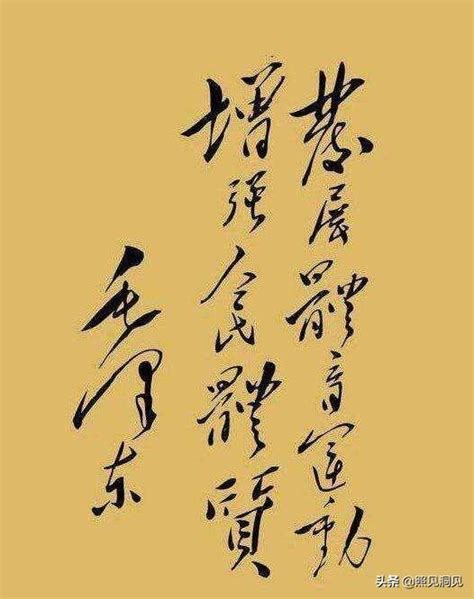 發展體育運動
增强人民體質
毛泽东
头条 @照见洞见